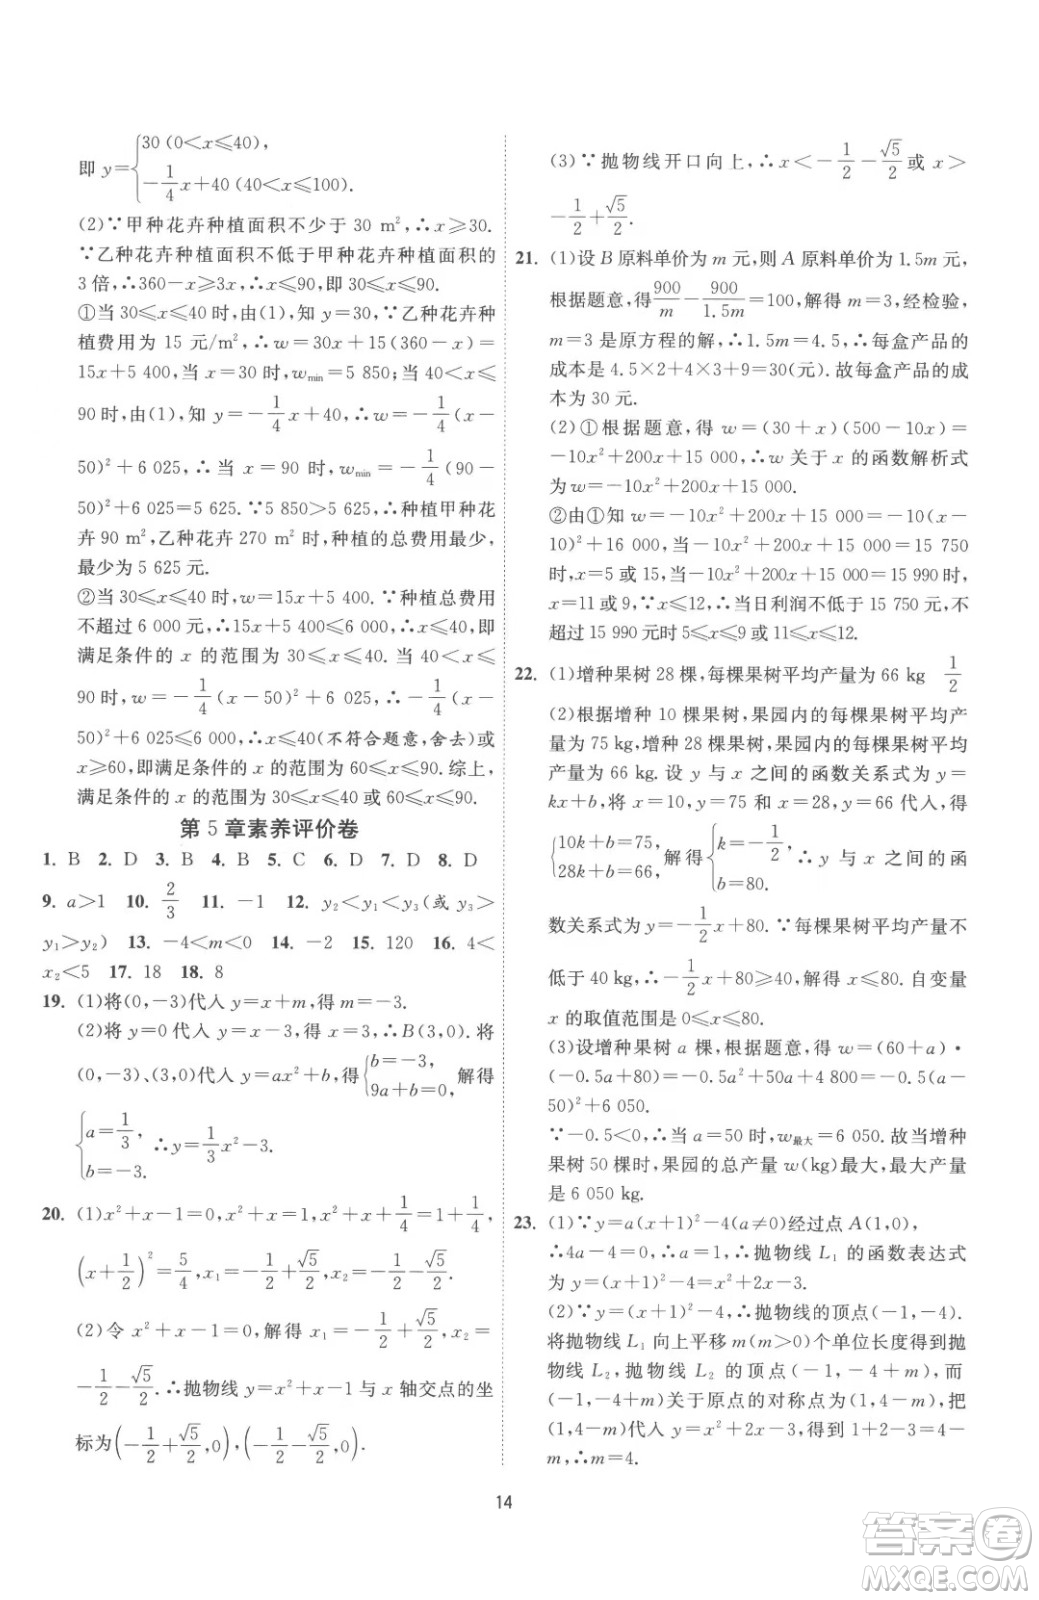 即 y={30 (0<x≤40),
-1/4x+40 (40<x≤100).
(2)∵甲种花卉种植面积不少于 30 m²,∴x≥30.
∵乙种花卉种植面积不低于甲种花卉种植面积的
3 倍,∴360-x≥3x,∴x≤90,∴30≤x≤90.
①当 30≤x≤40 时,由(1)知 y=30,∵乙种花卉种
植费用为 15 元/m²,∴w=30x+15(360-x)=
15x+5 400,当 x=30 时,w_min=5 850;当 40<x≤
90 时,由(1),知 y=-1/4x+40,∴w=-1/4(x-
50)²+6 025,∴当 x=90 时,w_min=-1/4(90-
50)²+6 025=5 625.∵5 850>5 625,∴种植甲种花
卉 90 m²,乙种花卉 270 m² 时,种植的总费用最少,
最少为 5 625 元.
②当 30≤x≤40 时,w=15x+5 400.∵种植总费用
不超过 6 000 元,∴15x+5 400≤6 000,∴x≤40,即
满足条件的 x 的范围为 30≤x≤40.当 40<x≤90
时,w=-1/4(x-50)²+6 025,∴-1/4(x-
50)²+6 025≤6 000,∴x≤40(不符合题意,舍去)或
x≥60,即满足条件的 x 的范围为 60≤x≤90.综上,
满足条件的 x 的范围为 30≤x≤40 或 60≤x≤90.
第 5 章素养评价卷
1. B 2. D 3. B 4. B 5. C 6. D 7. D 8. D
9. a>1 10. 2/3 11. -1 12. y₂<y₁<y₃(或 y₃>
y₁>y₂) 13. -4<m<0 14. -2 15. 120 16. 4<
x₂<5 17. 18 18. 8
19. (1)将(0,-3)代入 y=x+m,得 m=-3.
(2)将 y=0 代入 y=x-3,得 x=3,∴B(3,0).将
(0,-3)、(3,0)代入 y=ax²+b,得{b=-3, 9a+b=0, 解得
{a=1/3, b=-3, ∴y=1/3x²-3.
20. (1)x²+x-1=0,x²+x=1,x²+x+1/4=1+1/4,
(x+1/2)²=5/4,x₁=-1/2+√5/2,x₂=-1/2-√5/2.
(2)令 x²+x-1=0,解得 x₁=-1/2+√5/2,x₂=
-1/2-√5/2.∴抛物线 y=x²+x-1 与 x 轴交点的坐
标为(-1/2+√5/2,0),(-1/2-√5/2,0).
(3)∵抛物线开口向上,∴x<-1/2-√5/2或 x>
-1/2+√5/2.
21. (1)设 B 原料单价为 m 元,则 A 原料单价为 1.5m 元,
根据题意,得900/m-900/1.5m=100,解得 m=3,经检验,
m=3 是原方程的解,∴1.5m=4.5,∴每盒产品的
成本是 4.5×2+4×3+9=30(元).故每盒产品的成
本为 30 元.
(2)①根据题意,得 w=(30+x)(500-10x)=
-10x²+200x+15 000,∴w 关于 x 的函数解析式
为 w=-10x²+200x+15 000.
②由①知 w=-10x²+200x+15 000=-10(x-
10)²+16 000,当-10x²+200x+15 000=15 750
时,x=5 或 15,当-10x²+200x+15 000=15 990 时,
x=11 或 9,∵x≤12,∴当日利润不低于 15 750 元,不
超过 15 990 元时 5≤x≤9 或 11≤x≤12.
22. (1)增种果树 28 棵,每棵果树平均产量为 66 kg 1/2
(2)根据增种 10 棵果树,果园内的每棵果树平均产
量为 75 kg,增种 28 棵果树,果园内的每棵果树平均
产量为 66 kg.设 y 与 x 之间的函数关系式为 y=
kx+b,将 x=10,y=75 和 x=28,y=66 代入,得
{10k+b=75, 28k+b=66, 解得{k=-1/2, b=80. ∴y 与 x 之间的函
数关系式为 y=-1/2x+80.∵每棵果树平均产量不
低于 40 kg,∴-1/2x+80≥40,解得 x≤80.自变量
x 的取值范围是 0≤x≤80.
(3)设增种果树 a 棵,根据题意,得 w=(60+a)·
(-0.5a+80)=-0.5a²+50a+4 800=-0.5(a-
50)²+6 050.
∵-0.5<0,∴当 a=50 时,w最大=6 050.故当增种
果树 50 棵时,果园的总产量 w(kg)最大,最大产量
是 6 050 kg.
23. (1)∵y=a(x+1)²-4(a≠0)经过点 A(1,0),
∴4a-4=0,∴a=1,∴抛物线 L₁ 的函数表达式
为 y=(x+1)²-4=x²+2x-3.
(2)∵y=(x+1)²-4,∴抛物线的顶点(-1,-4).
将抛物线 L₁ 向上平移 m(m>0)个单位长度得到抛
物线 L₂,∴抛物线 L₂ 的顶点(-1,-4+m),而
(-1,-4+m)关于原点的对称点为(1,4-m),把
(1,4-m)代入 y=x²+2x-3,得到 1+2-3=4-
m,∴m=4.
14
答案圈
MXQE.COM